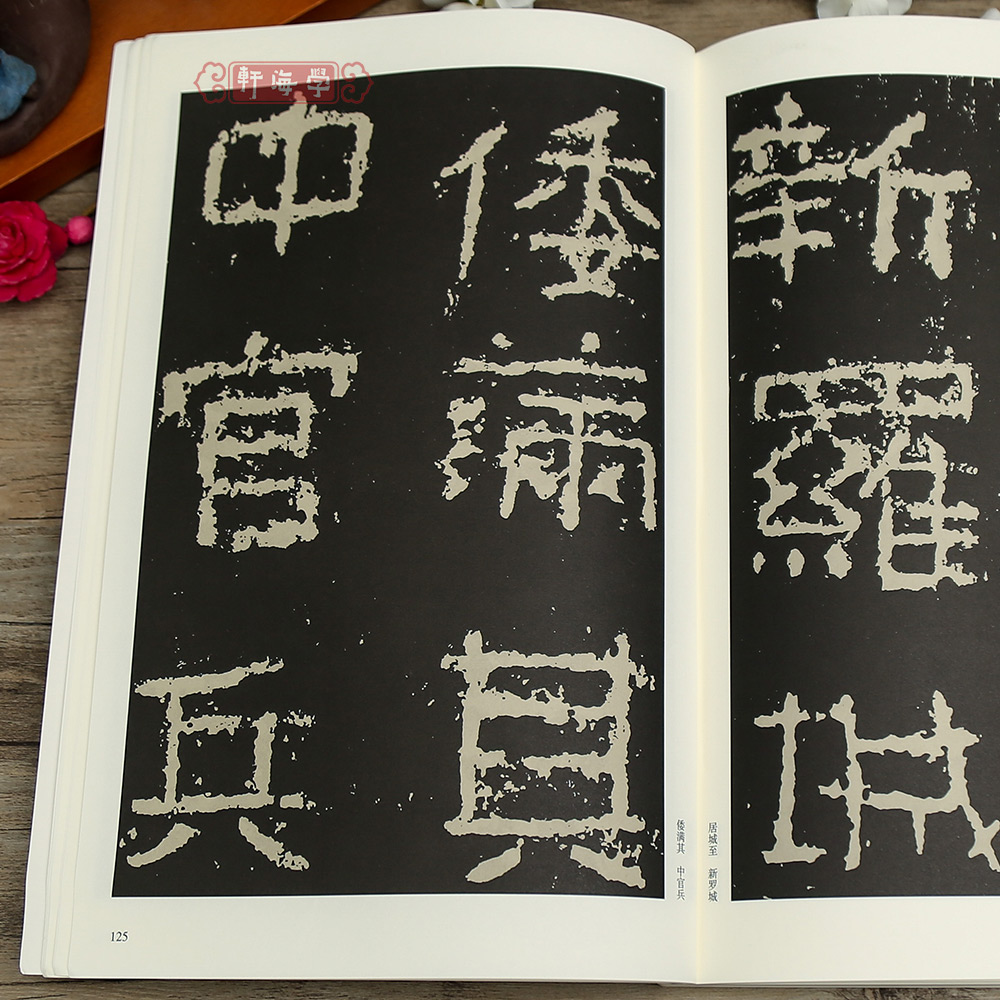 軒海學
新羅城
倭滿其
中官兵
居城至 新罗城
倭满其 中官兵
125